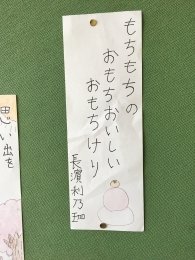 もちもちの
おもちおいしい
おもちけり
長濱利乃珈
思い出を